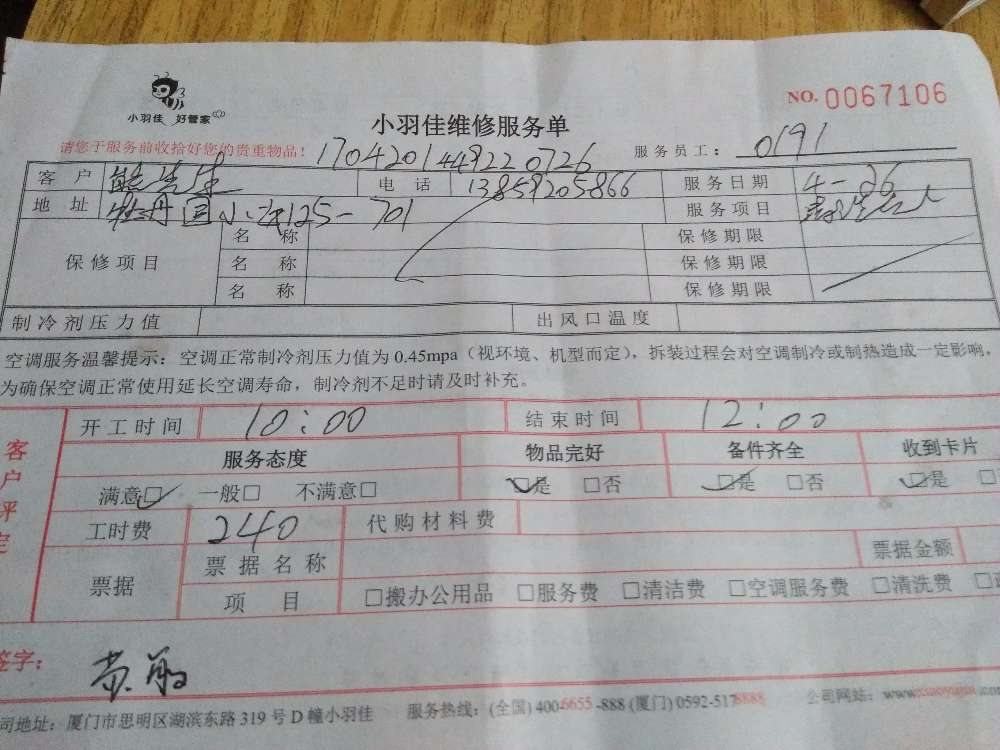 小羽佳 好管家
NO. 0067106
小羽佳维修服务单
请您于服务前收拾好您的贵重物品！ 1704201449220726 服务员工： 0191
客 户 熊先生 电 话 13859205866 服务日期 4-26
地 址 牡丹园小区125-701 服务项目
保修项目 名 称 保修期限
名 称 保修期限
名 称 保修期限
制冷剂压力值 出风口温度
空调服务温馨提示：空调正常制冷剂压力值为 0.45mpa（视环境、机型而定），拆装过程会对空调制冷或制热造成一定影响，
为确保空调正常使用延长空调寿命，制冷剂不足时请及时补充。
客户评定
开工时间 10:00 结束时间 12:00
服务态度 物品完好 备件齐全 收到卡片
满意☑ 一般□ 不满意□ ☑是 □否 ☑是 □否 ☑是 □
工时费 240 代购材料费
票据 票据名称 票据金额
项 目 □搬办公用品 □服务费 □清洁费 □空调服务费 □清洗费 □
签字：
司地址：厦门市思明区湖滨东路 319 号 D 幢小羽佳 服务热线：(全国) 400-6655-888 (厦门) 0592-5178888 公司网站：www.xiaoyujia.com